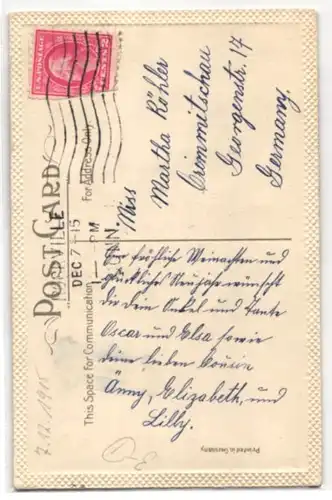 U.S. POSTAGE
2 CENTS 2
DEC 7
15
M
INN.
POST CARD
This Space For Communication
For Address Only
Miss
Martha Röhler
Crimmitschau
Georgenstr. 17
Germany.
fröhliche Weinachten und
glückliches Neujahr wünscht
dir dein Onkel und Tante
Oscar und Elsa sowie
deine lieben Cousin
Änny, Elizabeth, und
Lilly.
7.12.1915
Printed in Germany